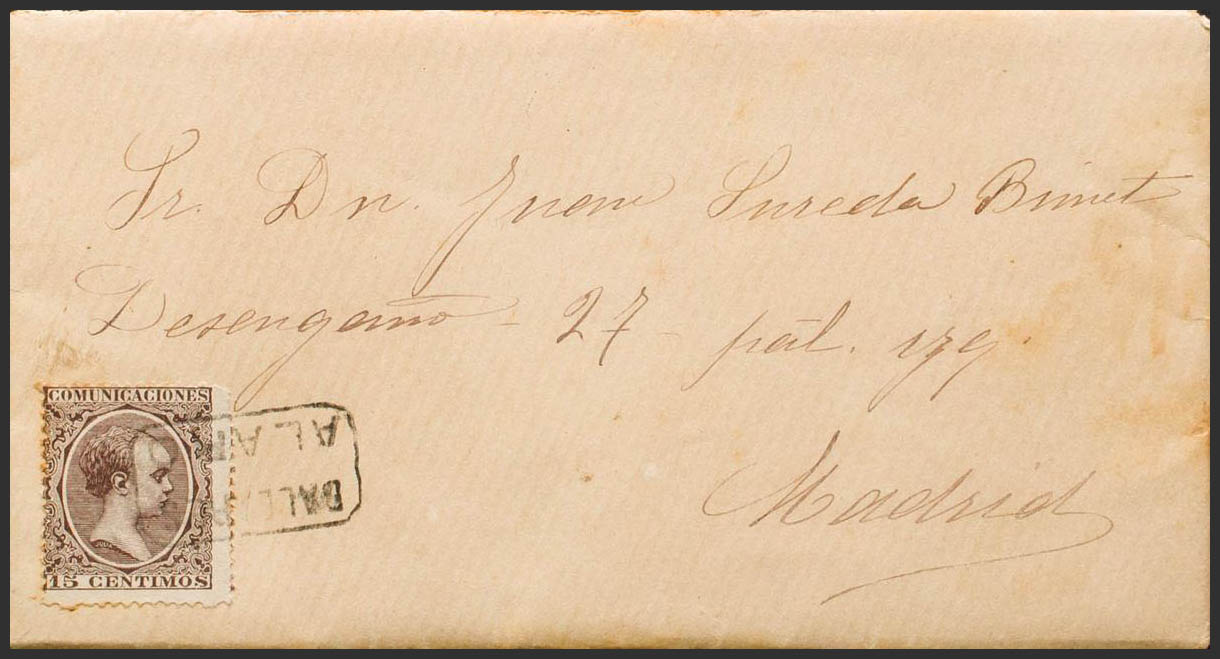 Sr. Dn. Juan Sureda Bimet
Desengaño - 27 - pâl. izq.
Madrid
COMUNICACIONES
15 CENTIMOS